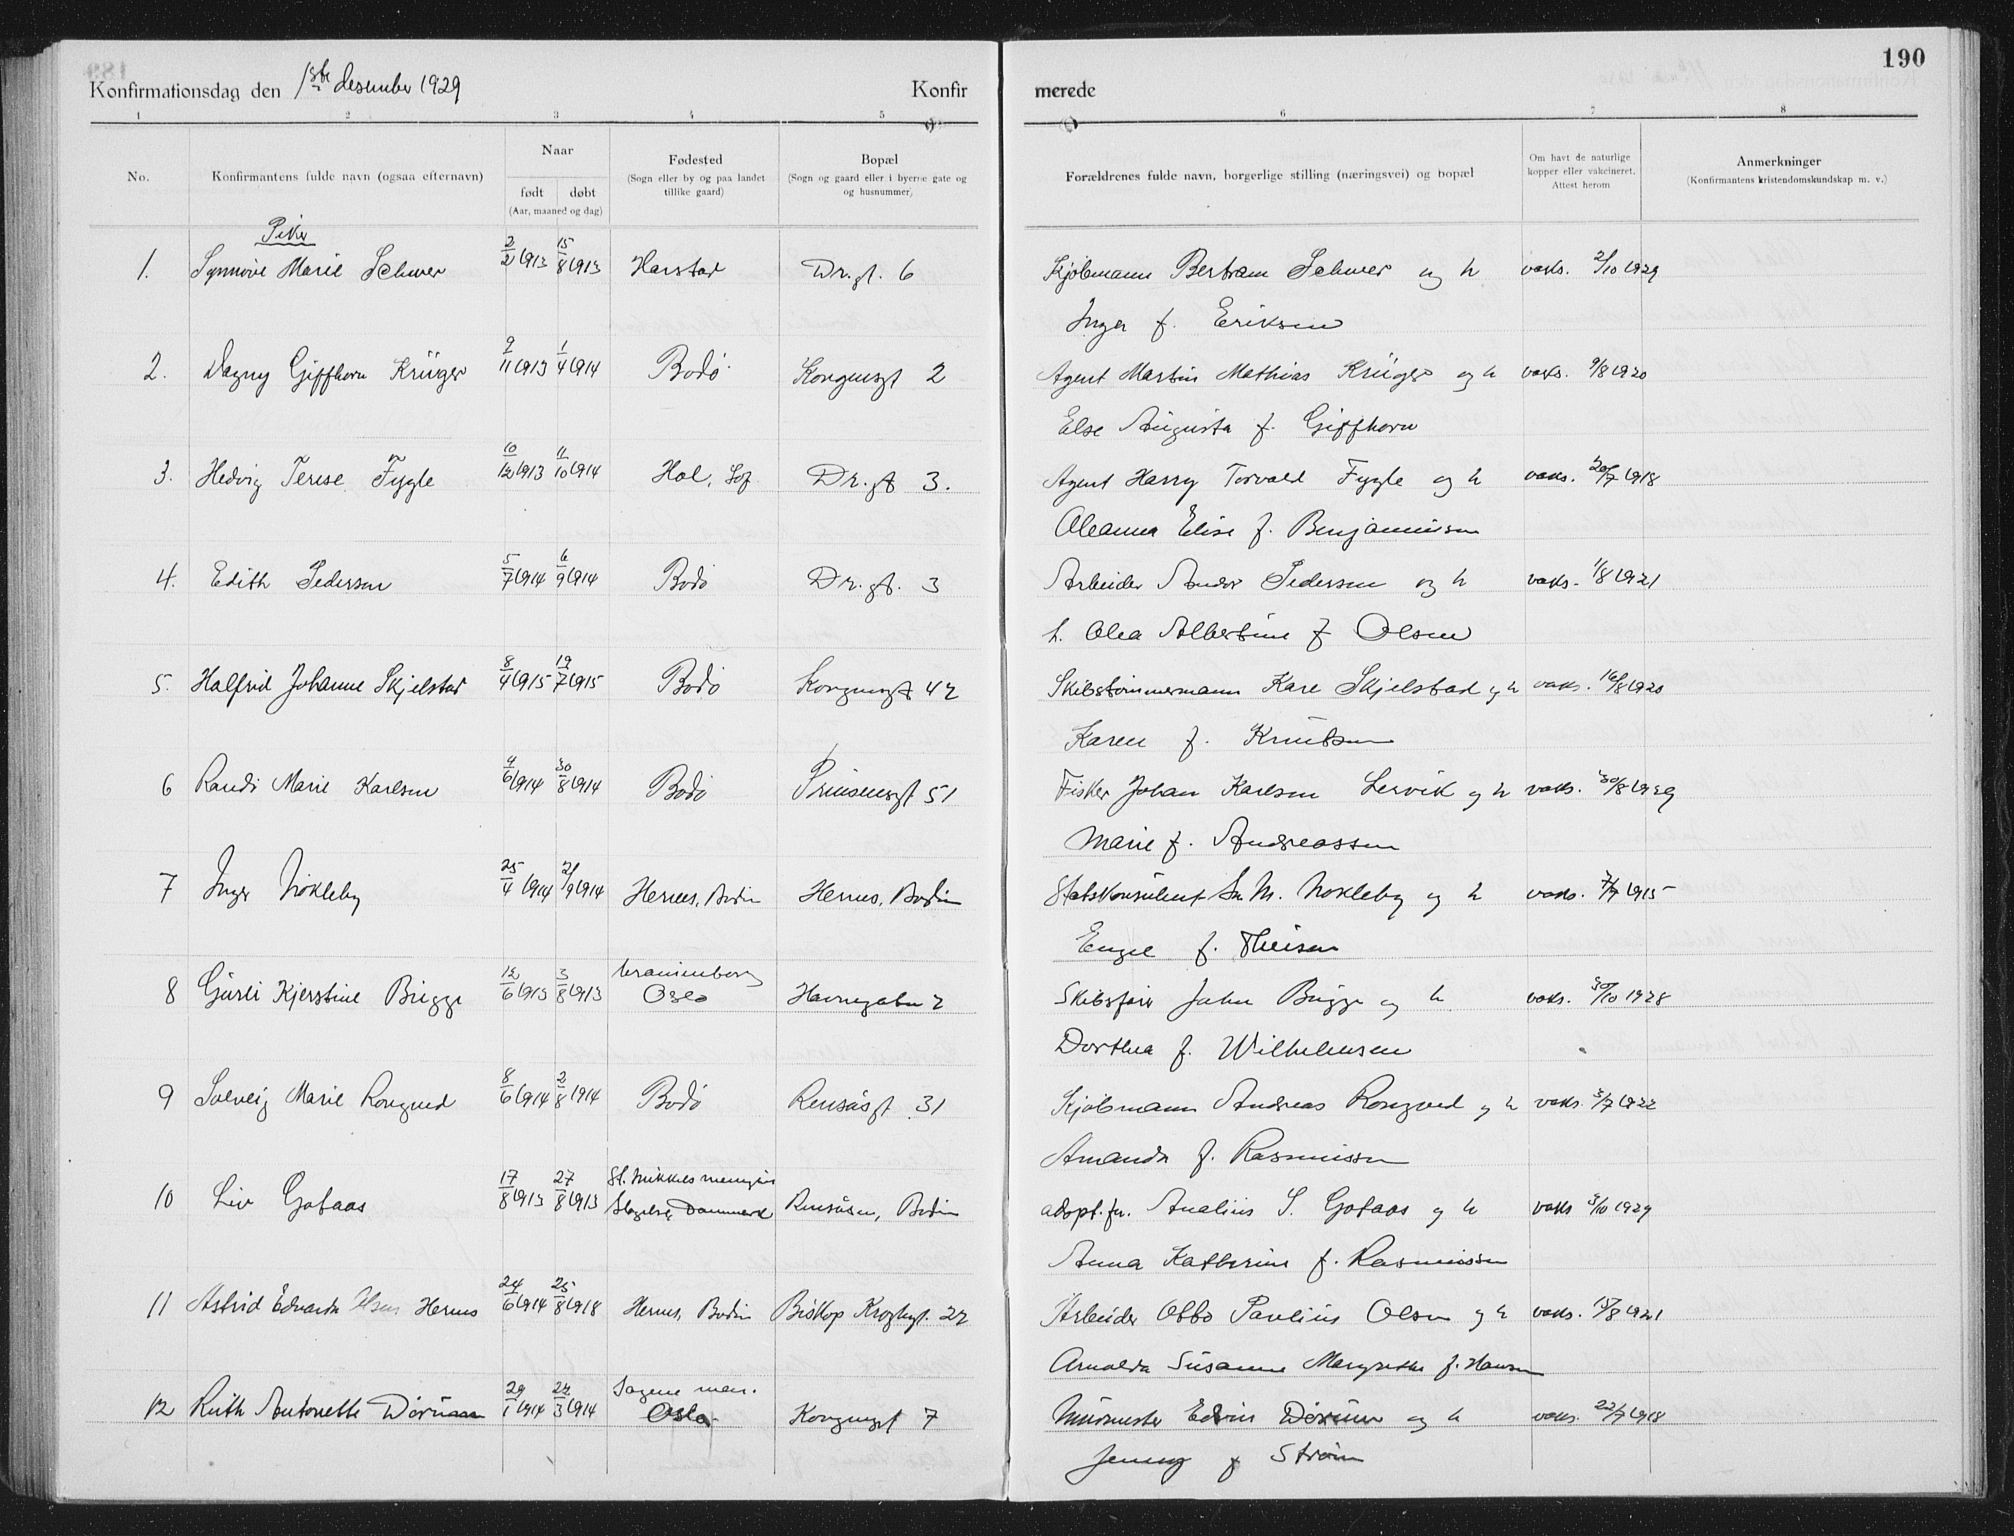 190
Konfirmationsdag den 1ste desember 1929 Konfir merede
1 2 3 4 5 6 7 8
No. Konfirmantens fulde navn (ogsaa efternavn) Naar født døbt (Aar, maaned og dag) Fødested (Sogn eller by og paa landet tillike gaard) Bopæl (Sogn og gaard eller i byerne gate og og husnummer) Forældrenes fulde navn, borgerlige stilling (næringsvei) og bopæl Om havt de naturlige kopper eller vakcineret. Attest herom Anmerkninger (Konfirmantens kristendomskundskap m. v.)
Piker
1. Synnøve Marie 2/2 1913 15/8 1913 Harstad Dr.gt. 6 Kjøbmann Bertram og h vaks. 2/10 1929
Inga f. Eriksen
2. Dagny Giffhorn Krüger 9/11 1913 1/4 1914 Bodø Kongensgt 2 Agent Martin Mathias Krüger og h vaks. 9/8 1920
Else Augusta f. Giffhorn
3. Hedvig Terese Fygle 10/12 1913 11/10 1914 Hol, Lof. Dr.gt 3. Agent Harry Torvald Fygle og h vaks. 20/7 1918
Oleanna Elise f. Benjaminsen
4. Edith Pedersen 5/7 1914 6/9 1914 Bodø Dr.gt. 3 Arbeider Andor Pedersen og h vaks. 1/8 1921
h. Olea Albertine f Olsen
5. Halfrid Johanne Skjelstad 8/4 1915 19/7 1915 Bodø Kongensgt 42 Skibstømmermann Kare Skjelstad og h vaks. 16/8 1920
Karen f. Knutsen
6 Randi Marie Karlsen 4/6 1914 30/8 1914 Bodø Prinsensgt 51 Fisker Johan Karlsen Lervik og h vaks. 30/8 1929
Marie f. Andreassen
7 Inger Nøkleby 25/4 1914 21/9 1914 Hernes, Bodin Hernes, Bodin Statskonsulent M. Nøkleby og h vaks. 7/7 1915
f. Theisen
8 Gurli Kjerstine Brigge 12/6 1913 3/8 1913 Uranienborg Oslo Havnegaten 2 Skibsfører John Brigge og h vaks. 30/10 1928
Dorthea f. Wilhelmsen
9 Solveig Marie Rongved 8/6 1914 2/8 1914 Bodø Rensåsgt 31 Kjøbmann Andreas Rongved og h vaks. 3/7 1922
Amanda f. Rasmussen
10 Liv Gotaas 17/8 1913 27/8 1913 St. Mikkels menighet Slagelse, Danmark Rensåsen, Bodin adopt.for. S. Gotaas og h vaks 3/10 1929
Anna Katherine f. Rasmussen
11 Astrid Edvarda Olsen Hernes 24/6 1914 25/8 1918 Hernes, Bodin Biskop Kroghsgt. 22 Arbeider Otto Paulius Olsen og h vaks. 15/8 1921
Arnolda Susanne Margrethe f. Hansen
12 Ruth Antonette Dørum 29/1 1914 22/3 1914 Sagene men. Oslo Kongensgt 7 Murmester Edvin Dørum og h vaks. 22/7 1918
Jenny f Strøm